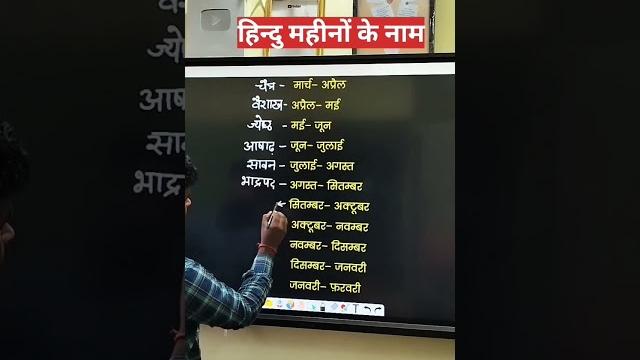 हिन्दु महीनों के नाम
चैत्र - मार्च- अप्रैल
वैशाख- अप्रैल- मई
ज्येष्ठ - मई- जून
आषाढ़ - जून- जुलाई
सावन - जुलाई- अगस्त
भाद्रपद - अगस्त- सितम्बर
सितम्बर- अक्टूबर
अक्टूबर- नवम्बर
नवम्बर- दिसम्बर
दिसम्बर- जनवरी
जनवरी- फ़रवरी